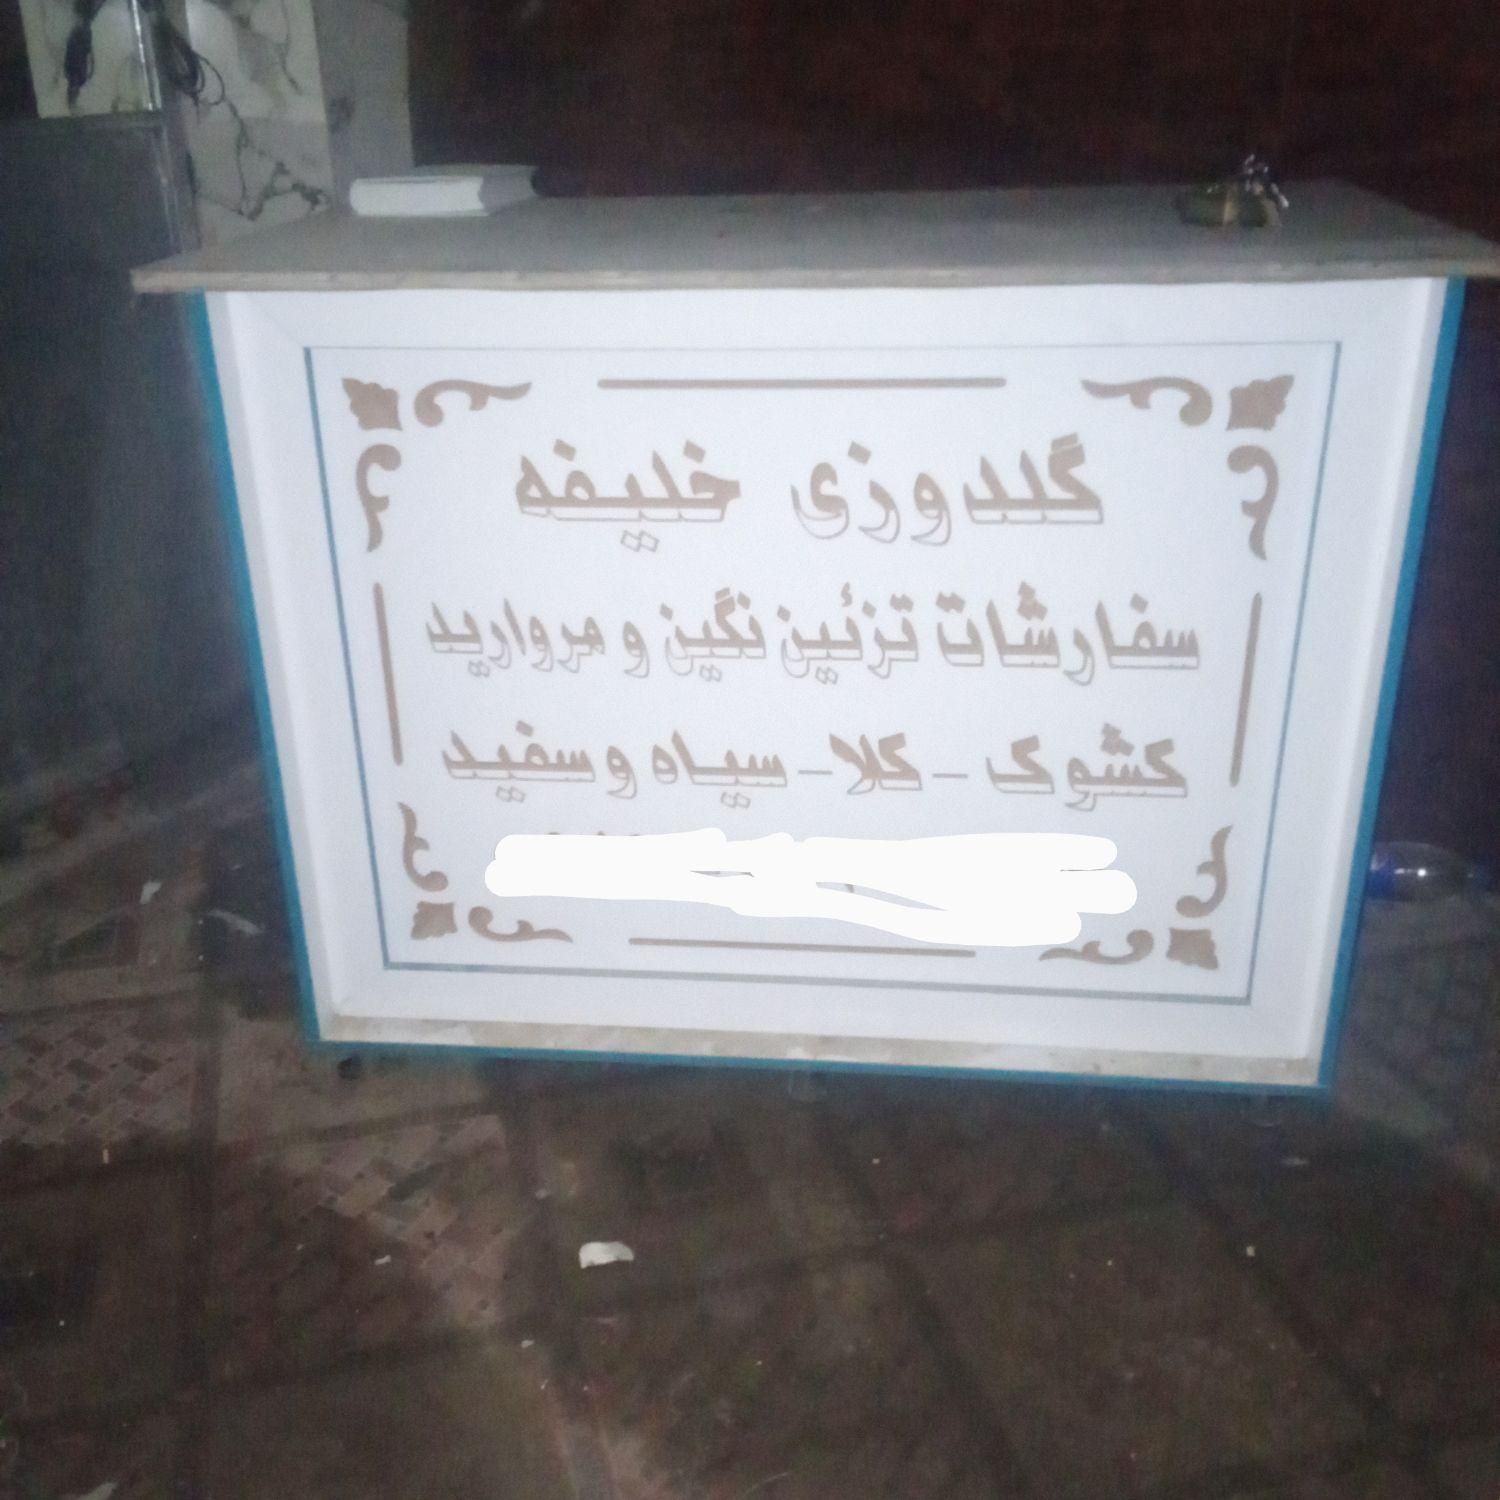 گلدوزی خلیفه
سفارشات تزئین نگین و مروارید
کشوک - کلا - سیاه و سفید